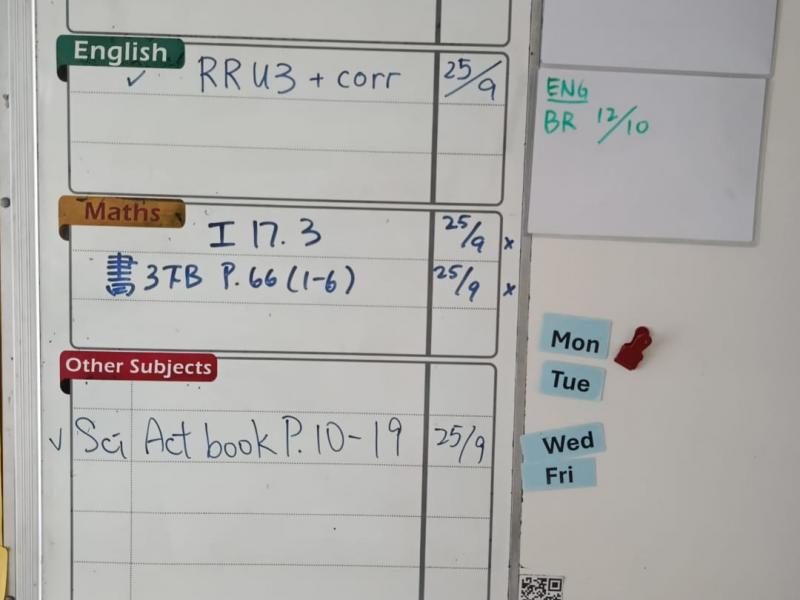 English
✓ RR U3 + corr 25/9
Maths
I 17.3 25/9 x
書 3下B P.66 (1-6) 25/9 x
Other Subjects
✓ Sci Act book P.10-19 25/9
ENG
BR 12/10
Mon
Tue
Wed
Fri